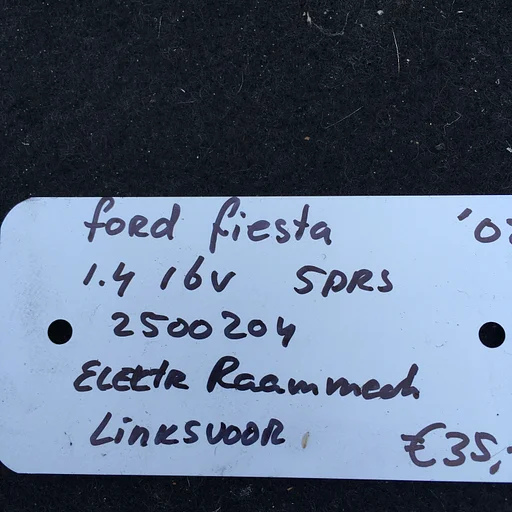 ford fiesta
1.4 16v 5DRS
2500204
ELEKtR Raammech
LinksvooR €35,-